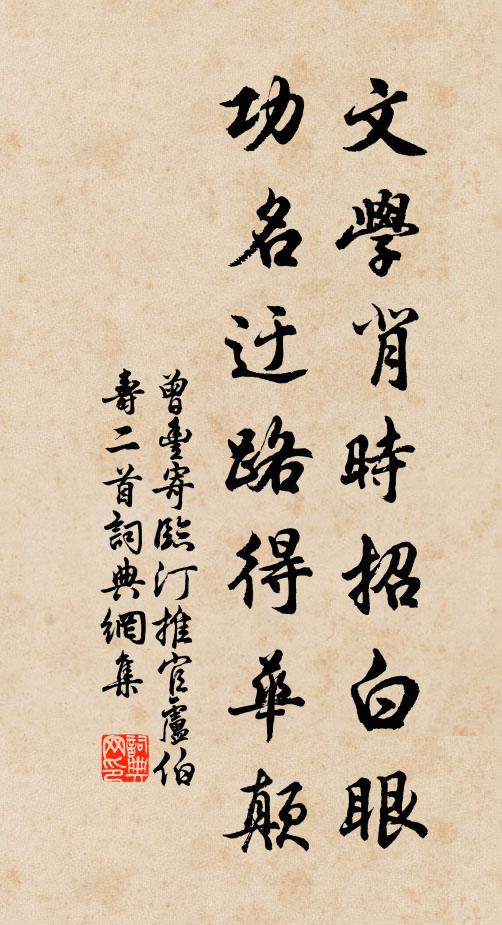 文學背時招白眼
功名迂路得華顛
曾豐寄臨汀推官盧伯
壽二首詞典網集
詞典網印